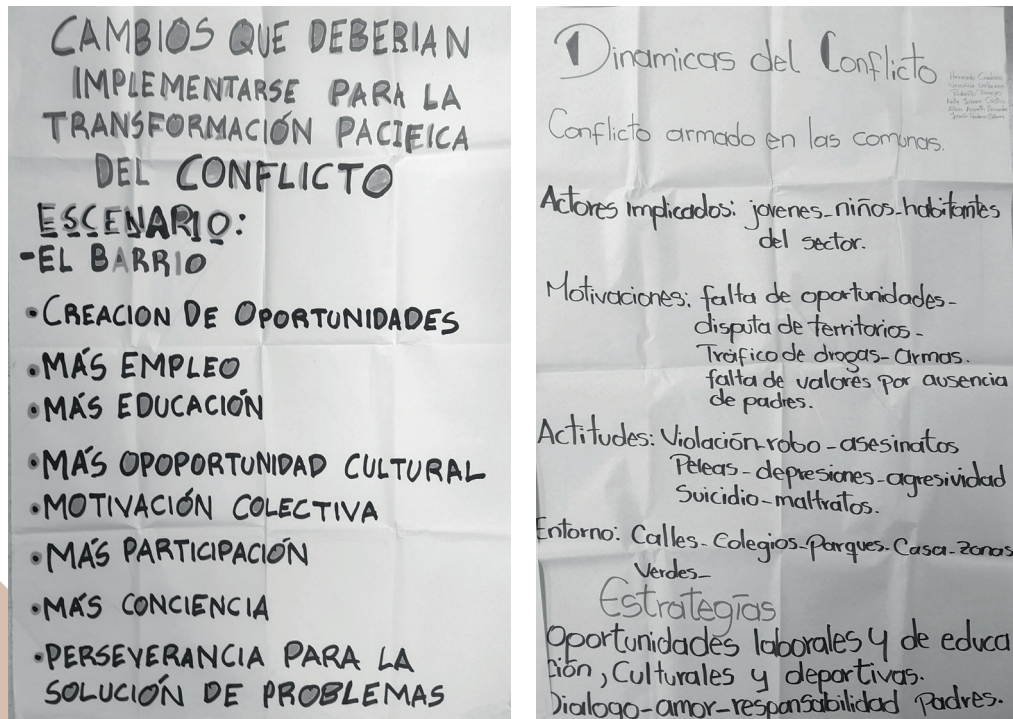 CAMBIOS QUE DEBERIAN
IMPLEMENTARSE PARA LA
TRANSFORMACIÓN PACIFICA
DEL CONFLICTO
ESCENARIO:
-EL BARRIO
•CREACION DE OPORTUNIDADES
•MÁS EMPLEO
•MÁS EDUCACIÓN
•MÁS OPOPORTUNIDAD CULTURAL
•MOTIVACIÓN COLECTIVA
•MÁS PARTICIPACIÓN
•MÁS CONCIENCIA
•PERSEVERANCIA PARA LA
SOLUCIÓN DE PROBLEMAS
Dinamicas del Conflicto
Conflicto armado en las comunas.
Actores implicados: jovenes-niños-habitantes
del sector.
Motivaciones: falta de oportunidades-
disputa de territorios-
Tráfico de drogas-armas.
falta de valores por ausencia
de padres.
Actitudes: Violación-robo-asesinatos
Peleas-depresiones-agresividad
Suicidio-maltratos.
Entorno: Calles-Colegios-Parques-Casa-zonas
Verdes-
Estrategías
Oportunidades laborales y de educa
ción, Culturales y deportivas.
Dialogo-amor-responsabilidad Padres.